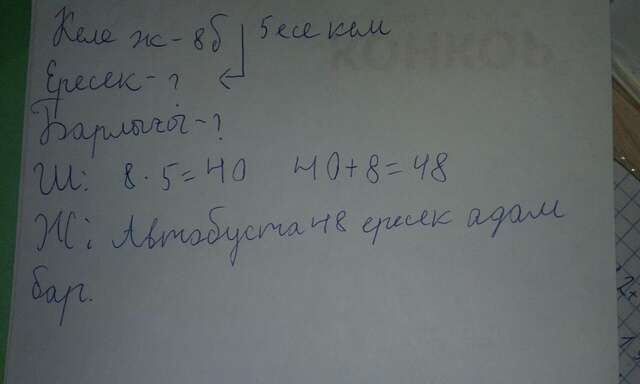 Келе ж-8б 5 есе кем
Ересек-?
Барлығы-?
Ш: 8·5=40 40+8=48
Ж: Автобуста 48 ересек адам
бар.